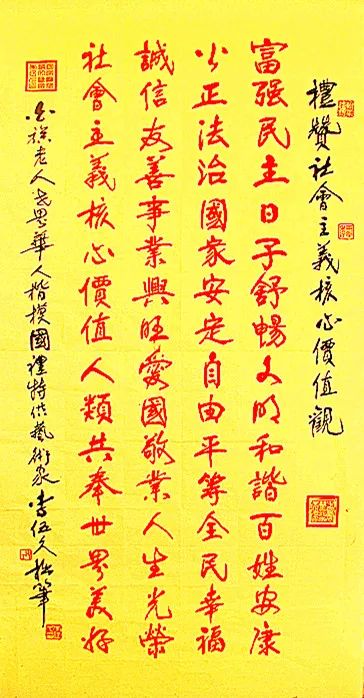 禮贊社會主義核心價值觀
富强民主日子舒暢文明和諧百姓安康
公正法治國家安定自由平等全民幸福
誠信友善事業興旺愛國敬業人生光榮
社會主義核心價值人類共奉世界美好
白族老人世界華人楷模國禮特供藝術家李伍久拙筆